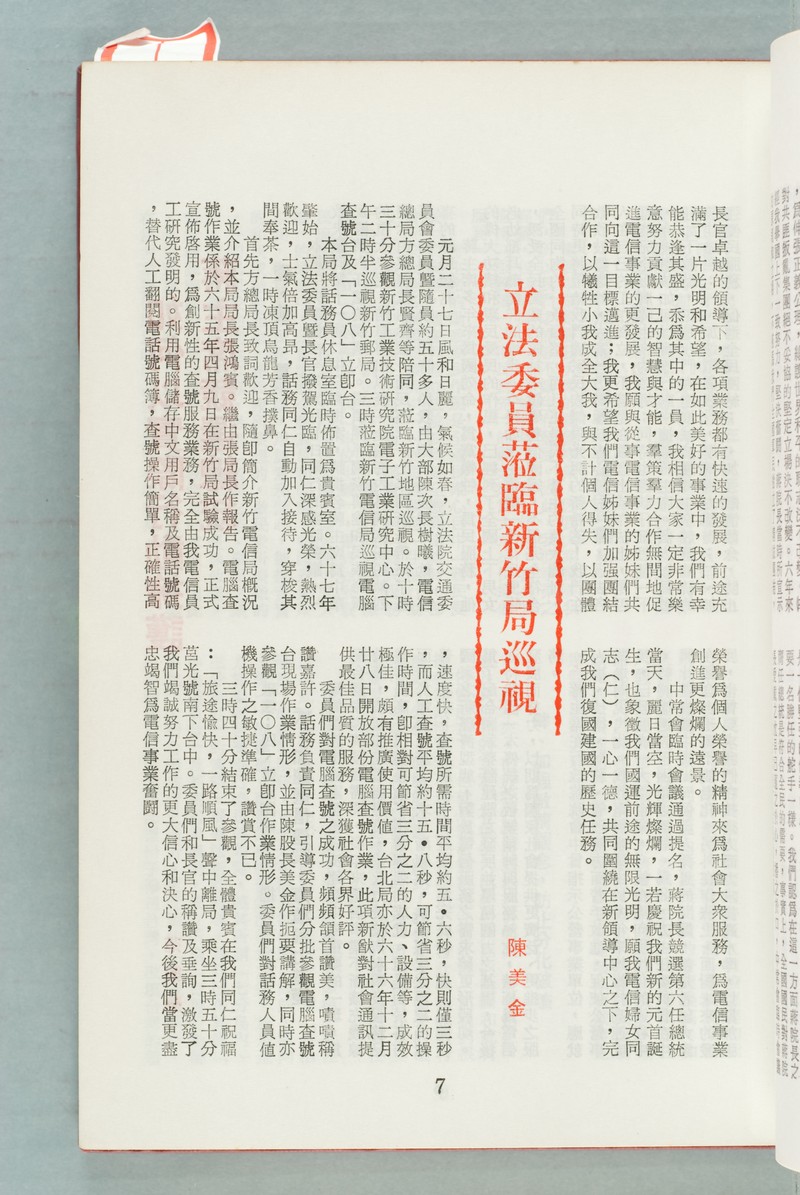 長官卓越的領導下，各項業務都有快速的發展，前途充
滿了一片光明和希望，在如此美好的事業中，我們有幸
能恭逢其盛，忝爲其中的一員，我相信大家一定非常樂
意努力貢獻一己的智慧與才能，羣策羣力合作無間地促
進電信事業的更發展，我願與從事電信事業的姊妹們共
同向這一目標邁進；我更希望我們電信姊妹們加强團結
合作，以犧牲小我成全大我，與不計個人得失，以團體
榮譽爲個人榮譽的精神來爲社會大衆服務，爲電信事業
創進更燦爛的遠景。
中常會臨時會議通過提名，蔣院長競選第六任總統
當天，麗日當空，光輝燦爛，一若慶祝我們新的元首誕
生，也象徵我們國運前途的無限光明，願我電信婦女同
志（仁），一心一德，共同團繞在新領導中心之下，完
成我們復國建國的歷史任務。
立法委員蒞臨新竹局巡視
陳美金
元月二十七日風和日麗，氣候如春，立法院交通委
員會委員暨隨員約五十多人，由大部陳次長樹曦，電信
總局方總局長賢齊等陪同，蒞臨新竹地區巡視。於十時
三十分參觀新竹工業技術研究院電子工業研究中心。下
午二時半巡視新竹郵局。三時蒞臨新竹電信局巡視電腦
查號台及「一〇八」立卽台。
本局將話務員休息室臨時佈置爲貴賓室。六十七年
肇始，立法委員暨長官撥駕光臨，同仁深感光榮，熱烈
歡迎，士氣倍加高昂，話務同仁自動加入接待，穿梭其
間奉茶，一時凍頂烏龍芳香撲鼻。
首先方總局長致詞歡迎，隨卽簡介新竹電信局概況
，並介紹本局局長張鴻賓。繼由張局長作報告。電腦查
號作業係於六十五年四月九日在新竹局試驗成功，正式
宣佈啓用，爲創新性的查號服務業務，完全由我電信員
工研究發明的。利用電腦儲存中文用戶名稱及電話號碼
，替代人工翻閱電話號碼簿，查號操作簡單，正確性高
，速度快，查號所需時間平均約五•六秒，快則僅三秒
，而人工查號平均約十五•八秒，可節省三分之二的操
作時間，卽相對可節省三分之二的人力、設備等，成效
極佳，頗有推廣使用價值，台北局亦於六十六年十二月
廿八日開放部份電腦查號作業，此項新猷對社會通訊提
供最佳品質的服務，深獲社會各界好評。
委員們對電腦查號之成功，頻頻頷首讚美，嘖嘖稱
讚嘉許。話務負責同仁，引導委員們分批參觀電腦查號
台現場作業情形，並由陳股長美金作扼要講解，同時亦
參觀「一〇八」立卽台作業情形。委員們對話務人員値
機操作之敏捷準確，讚賞不已。
三時四十分結束了參觀，全體貴賓在我們同仁祝福
：「旅途愉快，一路順風」聲中離局，乘坐三時五十分
莒光號南下台中。委員們和長官的稱讚及垂詢，激發了
我們竭誠努力工作的更大信心和決心，今後我們當更盡
忠竭智爲電信事業奮鬪。
7